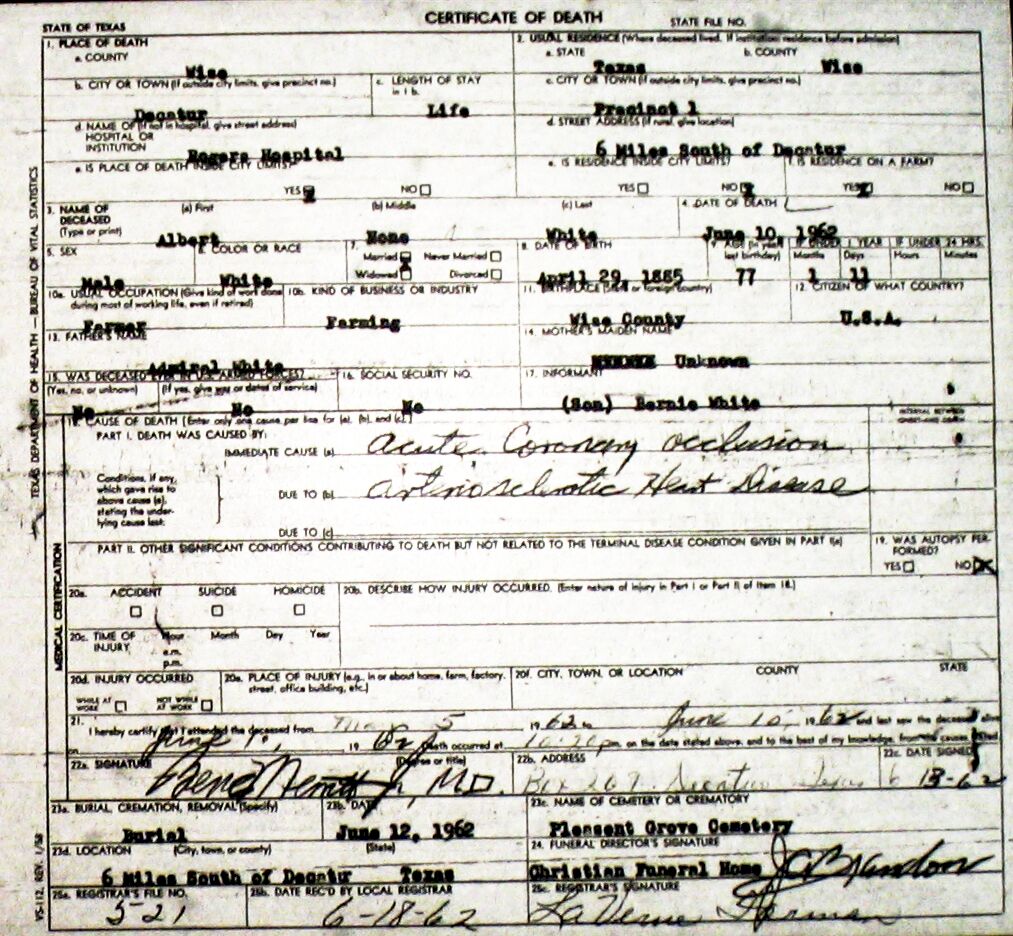 CERTIFICATE OF DEATH
STATE OF TEXAS
STATE FILE NO.
1. PLACE OF DEATH
a. COUNTY
Wise
2. USUAL RESIDENCE (Where deceased lived. If institution: residence before admission)
a. STATE
Texas
b. COUNTY
Wise
b. CITY OR TOWN (If outside city limits, give precinct no.)
Decatur
c. LENGTH OF STAY in 1 b.
Life
c. CITY OR TOWN (If outside city limits, give precinct no.)
Precinct 1
d. NAME OF (If not in hospital, give street address)
HOSPITAL OR
INSTITUTION
Rogers Hospital
d. STREET ADDRESS (If rural, give location)
6 Miles South of Decatur
e. IS PLACE OF DEATH INSIDE CITY LIMITS?
YES NO
e. IS RESIDENCE INSIDE CITY LIMITS?
YES NO
f. IS RESIDENCE ON A FARM?
YES NO
3. NAME OF
DECEASED
(Type or print)
(a) First
Albert
(b) Middle
None
(c) Last
White
4. DATE OF DEATH
June 10, 1962
5. SEX
Male
6. COLOR OR RACE
White
7.
Married Never Married
Widowed Divorced
8. DATE OF BIRTH
April 29, 1885
9. AGE (In years last birthday)
77
IF UNDER 1 YEAR
Months Days
1 11
IF UNDER 24 HRS.
Hours Minutes
10a. USUAL OCCUPATION (Give kind of work done
during most of working life, even if retired)
Farmer
10b. KIND OF BUSINESS OR INDUSTRY
Farming
11. BIRTHPLACE (State or foreign country)
Wise County
12. CITIZEN OF WHAT COUNTRY?
U.S.A.
13. FATHER'S NAME
Admiral White
14. MOTHER'S MAIDEN NAME
Unknown
15. WAS DECEASED EVER IN U.S. ARMED FORCES?
(Yes, no, or unknown) (If yes, give war or dates of service)
No No
16. SOCIAL SECURITY NO.
No
17. INFORMANT
(Son) Bernie White
18. CAUSE OF DEATH [Enter only one cause per line for (a), (b), and (c).]
INTERVAL BETWEEN
ONSET AND DEATH
PART I. DEATH WAS CAUSED BY:
IMMEDIATE CAUSE (a)
acute Coronary occlusion
Conditions, if any,
which gave rise to
above cause (a),
stating the under-
lying cause last.
DUE TO (b)
artriosclerotic Heart Disease
DUE TO (c)
PART II. OTHER SIGNIFICANT CONDITIONS CONTRIBUTING TO DEATH BUT NOT RELATED TO THE TERMINAL DISEASE CONDITION GIVEN IN PART I(a)
19. WAS AUTOPSY PER-
FORMED?
YES NO
20a. ACCIDENT SUICIDE HOMICIDE
20b. DESCRIBE HOW INJURY OCCURRED. (Enter nature of injury in Part I or Part II of Item 18.)
20c. TIME OF
INJURY
Hour Month Day Year
a.m.
p.m.
20d. INJURY OCCURRED
WHILE AT WORK NOT WHILE AT WORK
20e. PLACE OF INJURY (e.g., in or about home, farm, factory,
street, office building, etc.)
20f. CITY, TOWN, OR LOCATION COUNTY STATE
21. I hereby certify that I attended the deceased from May 5 1962 to June 10, 1962 and last saw the deceased alive
on June 1962 Death occurred at m. on the date stated above, and to the best of my knowledge, from the causes stated.
22a. SIGNATURE (Degree or title)
M.D.
22b. ADDRESS
Box 267 Decatur Texas
22c. DATE SIGNED
6 13-62
23a. BURIAL, CREMATION, REMOVAL (Specify)
Burial
23b. DATE
June 12, 1962
23c. NAME OF CEMETERY OR CREMATORY
Pleasent Grove Cemetery
23d. LOCATION (City, town, or county) (State)
6 Miles South of Decatur Texas
24. FUNERAL DIRECTOR'S SIGNATURE
Christian Funeral Home J C Brandon
25a. REGISTRAR'S FILE NO.
5-21
25b. DATE REC'D BY LOCAL REGISTRAR
6-18-62
25c. REGISTRAR'S SIGNATURE
LaVerne Herman
TEXAS DEPARTMENT OF HEALTH — BUREAU OF VITAL STATISTICS
MEDICAL CERTIFICATION
VS-112, REV. 1/58